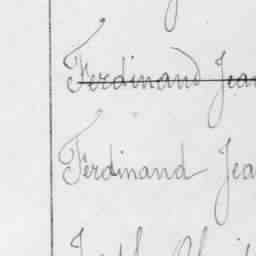 Ferdinand Jea
Ferdinand Jea